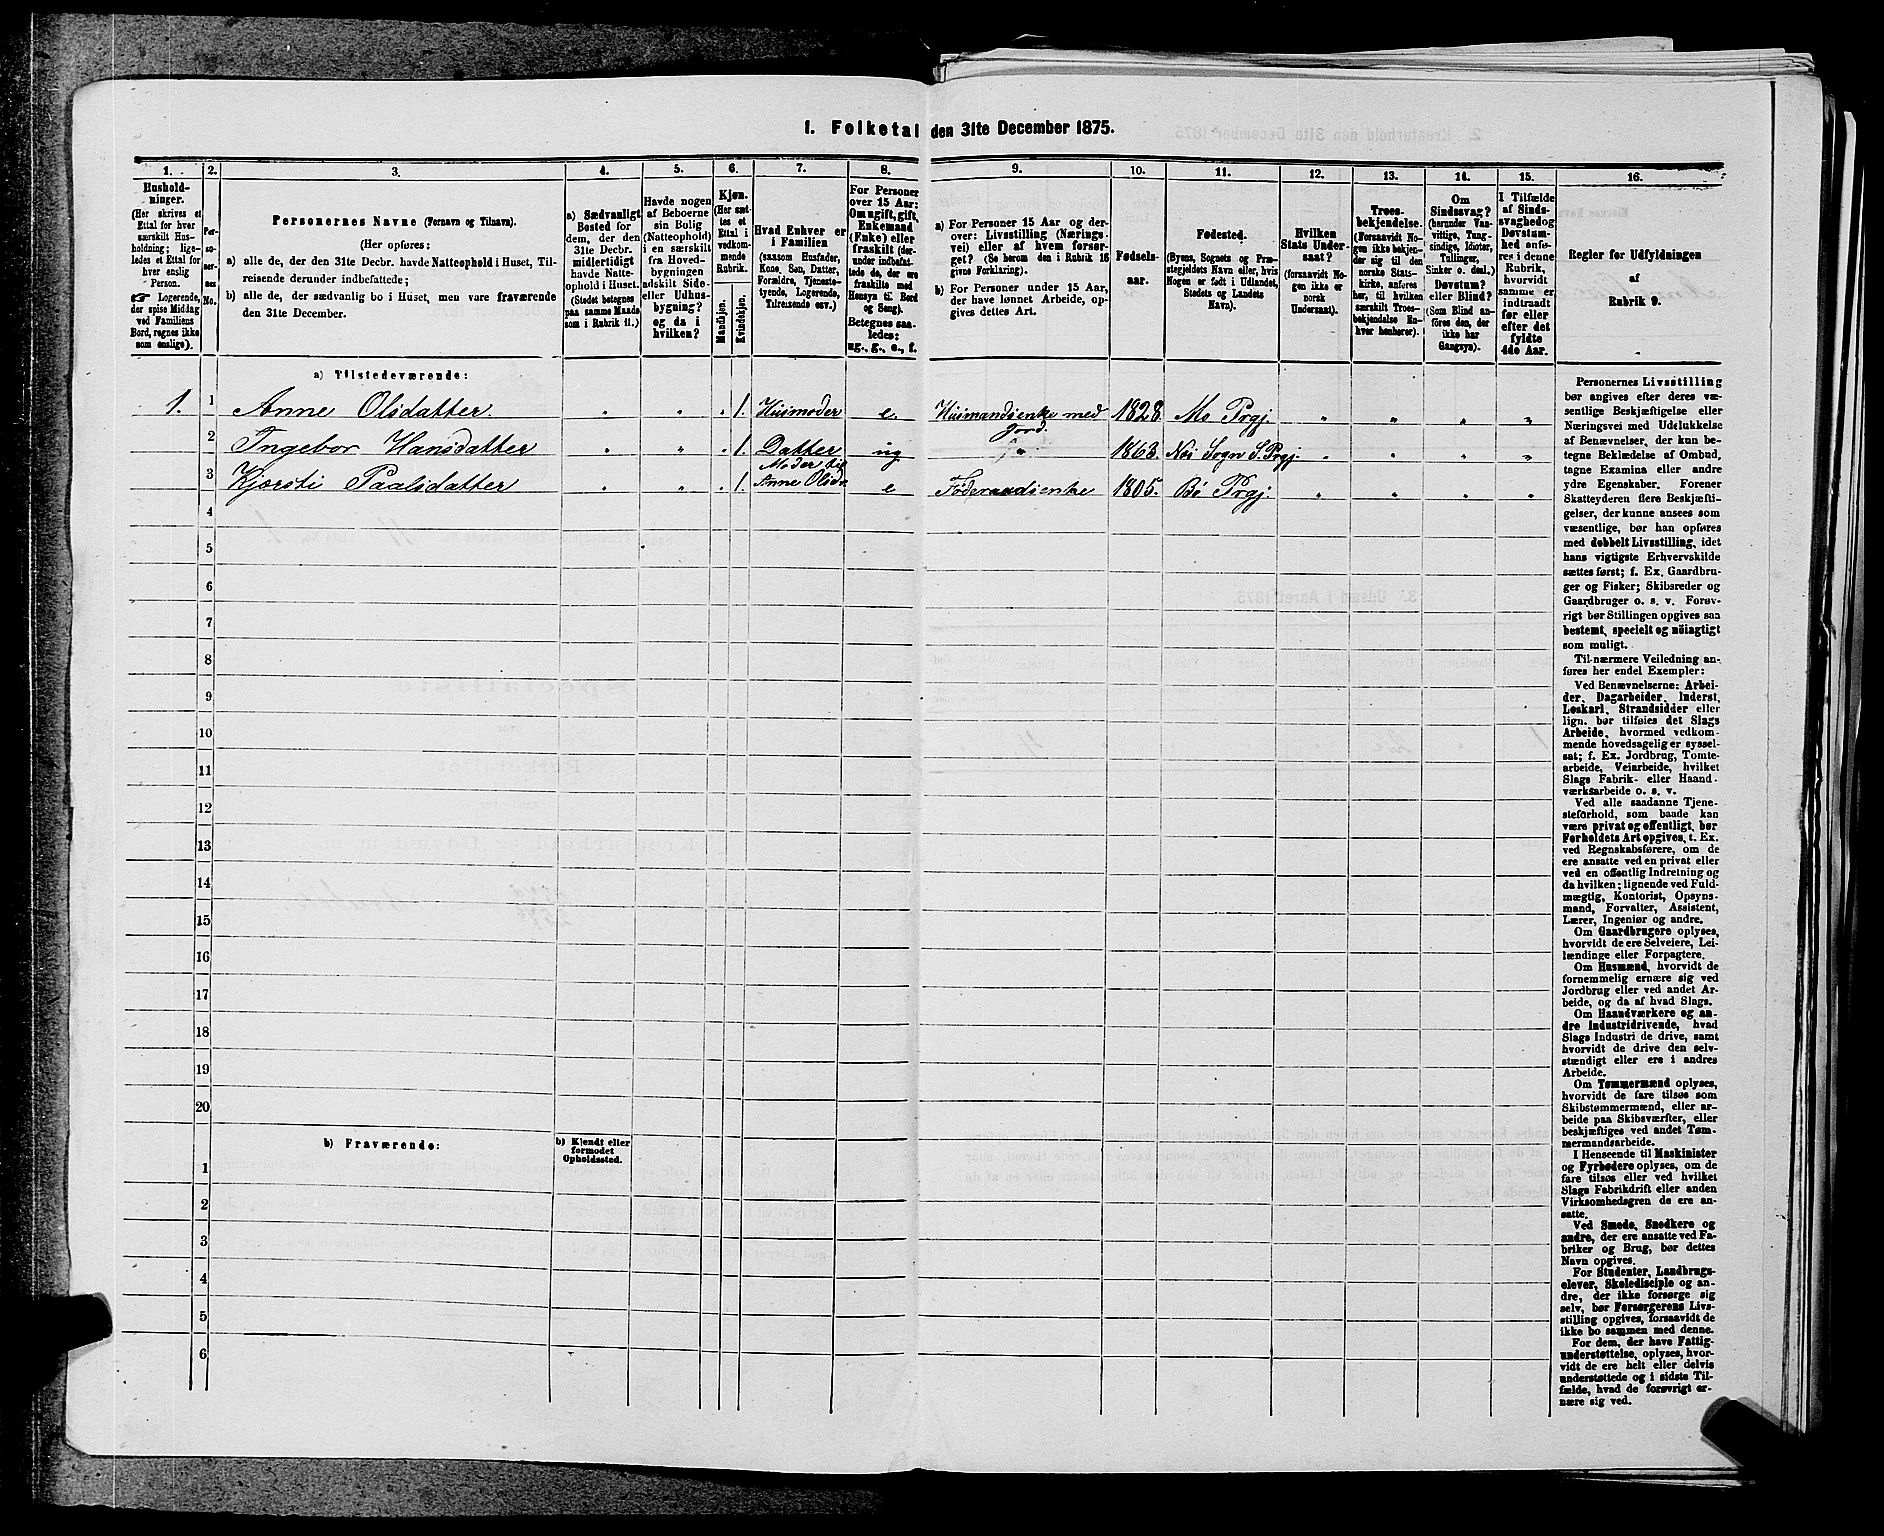 1. Folketal den 31te December 1875.
1. 2. 3. 4. 5. 6. 7. 8. 9. 10. 11. 12. 13. 14. 15. 16.
Hushold-
ninger.
(Her skrives et
Ettal for hver
særskilt Hus-
holdning; lige-
ledes et Ettal for
hver enslig
Person.
☞ Logerende,
der spise Middag
ved Familiens
Bord, regnes ikke
som enslige).
Per-
so-
ner-
nes
No.
Personernes Navne (Fornavn og Tilnavn).
(Her opføres:
a) alle de, der den 31te Decbr. havde Natteophold i Huset, Til-
reisende derunder indbefattede;
b) alle de, der sædvanlig bo i Huset, men vare fraværende
den 31te December.
a) Sædvanligt
Bosted for
dem, der den
31te Decbr.
midlertidigt
havde Natte-
ophold i Huset.
(Stedet betegnes
paa samme Maade
som i Rubrik 11.)
Havde nogen
af Beboerne
sin Bolig
(Natteophold)
i en særskilt
fra Hoved-
bygningen
adskilt Side-
eller Udhus-
bygning?
og da i
hvilken?
Kjøn.
(Her sæt-
tes et
Ettal i
vedkom-
mende
Rubrik.
Mandkjøn.
Kvindekjøn.
Hvad Enhver er
i Familien
(saasom Husfader,
Kone, Søn, Datter,
Forældre, Tjeneste-
tyende, Logerende,
Tilreisende osv.)
For Personer
over 15 Aar:
Om ugift, gift,
Enkemand
(Enke) eller
fraskilt (der-
under indbefat-
tede de, der ere
fraskilte med
Hensyn til Bord
og Seng).
Betegnes saa-
ledes:
ug., g., e., f.
a) For Personer 15 Aar og der-
over: Livsstilling (Nærings
vei) eller af hvem forsør-
get? (Se herom den i Rubrik 16
givne Forklaring).
b) For Personer under 15 Aar,
der have lønnet Arbeide, op-
gives dettes Art.
Fødsels-
aar.
Fødested.
(Byens, Sognets og Præ-
stegjeldets Navn eller, hvis
Nogen er født i Udlandet,
Stedets og Landets
Navn).
Hvilken
Stats Under-
saat?
(forsaavidt No-
gen ikke er
norsk
Undersaat).
Troes-
bekjendelse.
(Forsaavidt No-
gen ikke bekjen-
der sig til den
norske Stats-
kirke, anføres
her, til hvilken
særskilt Troes-
bekjendelse En-
hver henhører).
Om
Sindssvag?
(herunder Van-
vittige, Tung-
sindige, Idioter,
Tullinger,
Sinker o. desl.)
Døvstum?
eller Blind?
(Som Blind an-
føres den, der
ikke har
Gangsyn).
I Tilfælde
af Sinds-
svaghed og
Døvstum-
hed anfø-
res i denne
Rubrik,
hvorvidt
samme er
indtraadt
før eller
efter det
fyldte
4de Aar.
Regler for Udfyldningen
af
Rubrik 9.
a) Tilstedeværende:
1. 1 Anne Olsdatter. " " " 1. Husmoder e. Husmandsenke med Jord. 1828. Mo Prgj. " " " "
2 Ingebor Hansdatter " " " 1. Datter ug " 1863. Næs Sogn S. Prgj. " " " "
3 Kjørsti Paalsdatter " " " 1. Moder til Anne Olsdr. e Føderaadsenke 1805. Bø Prgj. " " " "
4
5
6
7
8
9
10
11
12
13
14
15
16
17
18
19
20
b) Fraværende:
b) Kjendt eller
formodet
Opholdssted.
1
2
3
4
5
6
Personernes Livsstilling
bør angives efter deres væ-
sentlige Beskjæftigelse eller
Næringsvei med Udelukkelse
af Benævnelser, der kun be-
tegne Beklædelse af Ombud,
tagne Examina eller andre
ydre Egenskaber. Forener
Skatteyderen flere Beskjæfti-
gelser, der kunne ansees som
væsentlige, bør han opføres
med dobbelt Livsstilling, idet
hans vigtigste Erhvervskilde
sættes først; f. Ex. Gaardbru-
ger og Fisker; Skibsreder og
Gaardbruger o. s. v. Forøv-
rigt bør Stillingen opgives saa
bestemt, specielt og nöiagtigt
som muligt.
Til nærmere Veiledning an-
føres her endel Exempler:
Ved Benævnelserne: Arbei-
der, Dagarbeider, Inderst,
Løskarl, Strandsidder eller
lign. bør tilføies det Slags
Arbeide, hvormed vedkom-
mende hovedsagelig er syssel-
sat; f. Ex. Jordbrug, Tomte-
arbeide, Veiarbeide, hvilket
Slags Fabrik- eller Haand-
værksarbeide o. s. v.
Ved alle saadanne Tjene-
steforhold, som baade kan
være privat og offentligt, bør
Forholdets Art opgives, t. Ex.
ved Regnskabsførere, om de
ere ansatte ved en privat eller
ved en offentlig Indretning og
da hvilken; lignende ved Fuld-
mægtig, Kontorist, Opsyns-
mand, Forvalter, Assistent,
Lærer, Ingeniør og andre.
Om Gaardbrugere oplyses,
hvorvidt de ere Selveiere, Lei-
lændinge eller Forpagtere.
Om Husmænd, hvorvidt de
fornemmelig ernære sig ved
Jordbrug eller ved andet Ar-
beide, og da af hvad Slags.
Om Haandværkere og an-
dre Industridrivende, hvad
Slags Industri de drive, samt
hvorvidt de drive den selv-
stændigt eller ere i andres
Arbeide.
Om Tømmermænd oplyses,
hvorvidt de fare tilsøs som
Skibstømmermænd, eller ar-
beide paa Skibsværfter, eller
beskjæftiges ved andet Tøm-
mermandsarbeide.
I Henseende til Maskinister
og Fyrbødere oplyses, om de
fare tilsøs eller ved hvilket
Slags Fabrikdrift eller anden
Virksomhed sgren de ere an-
satte.
Ved Smede, Snedkere og
andre, der ere ansatte ved Fa-
briker og Brug, bør dettes
Navn opgives.
For Studenter, Landbrugs-
elever, Skoledisciple og an-
dre, der ikke forsørge sig
selv, bør Forsørgerens Livs-
stilling opgives, forsaavidt de
ikke bo sammen med denne.
For dem, der have Fattig-
understøttelse, oplyses, hvor-
vidt de ere helt eller delvis
understøttede og i sidste Til-
fælde, hvad de forøvrigt er-
nære sig ved.